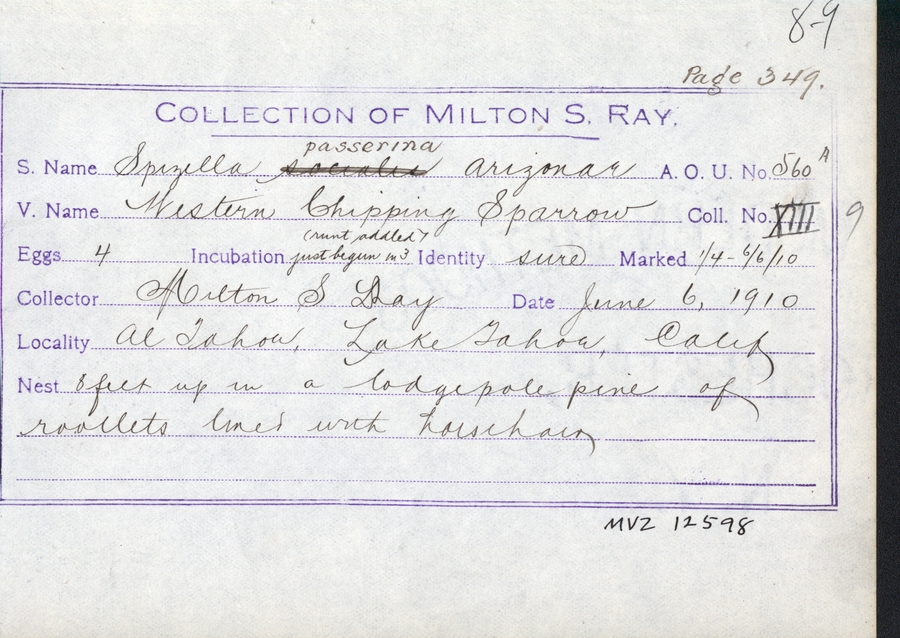 8-9
Page 349.
COLLECTION OF MILTON S. RAY.
passerina
S. Name Spizella socialis arizonae A. O. U. No. 560 A
V. Name Western Chipping Sparrow Coll. No. XIII 9
(runt addled)
Eggs 4 Incubation just begun in 3 Identity sure Marked 1/4 - 6/6/10
Collector Milton S Ray Date June 6, 1910
Locality Al Tahoe, Lake Tahoe, Calif
Nest 8 feet up in a lodgepole pine of
rootlets lined with horsehair
MVZ 12598